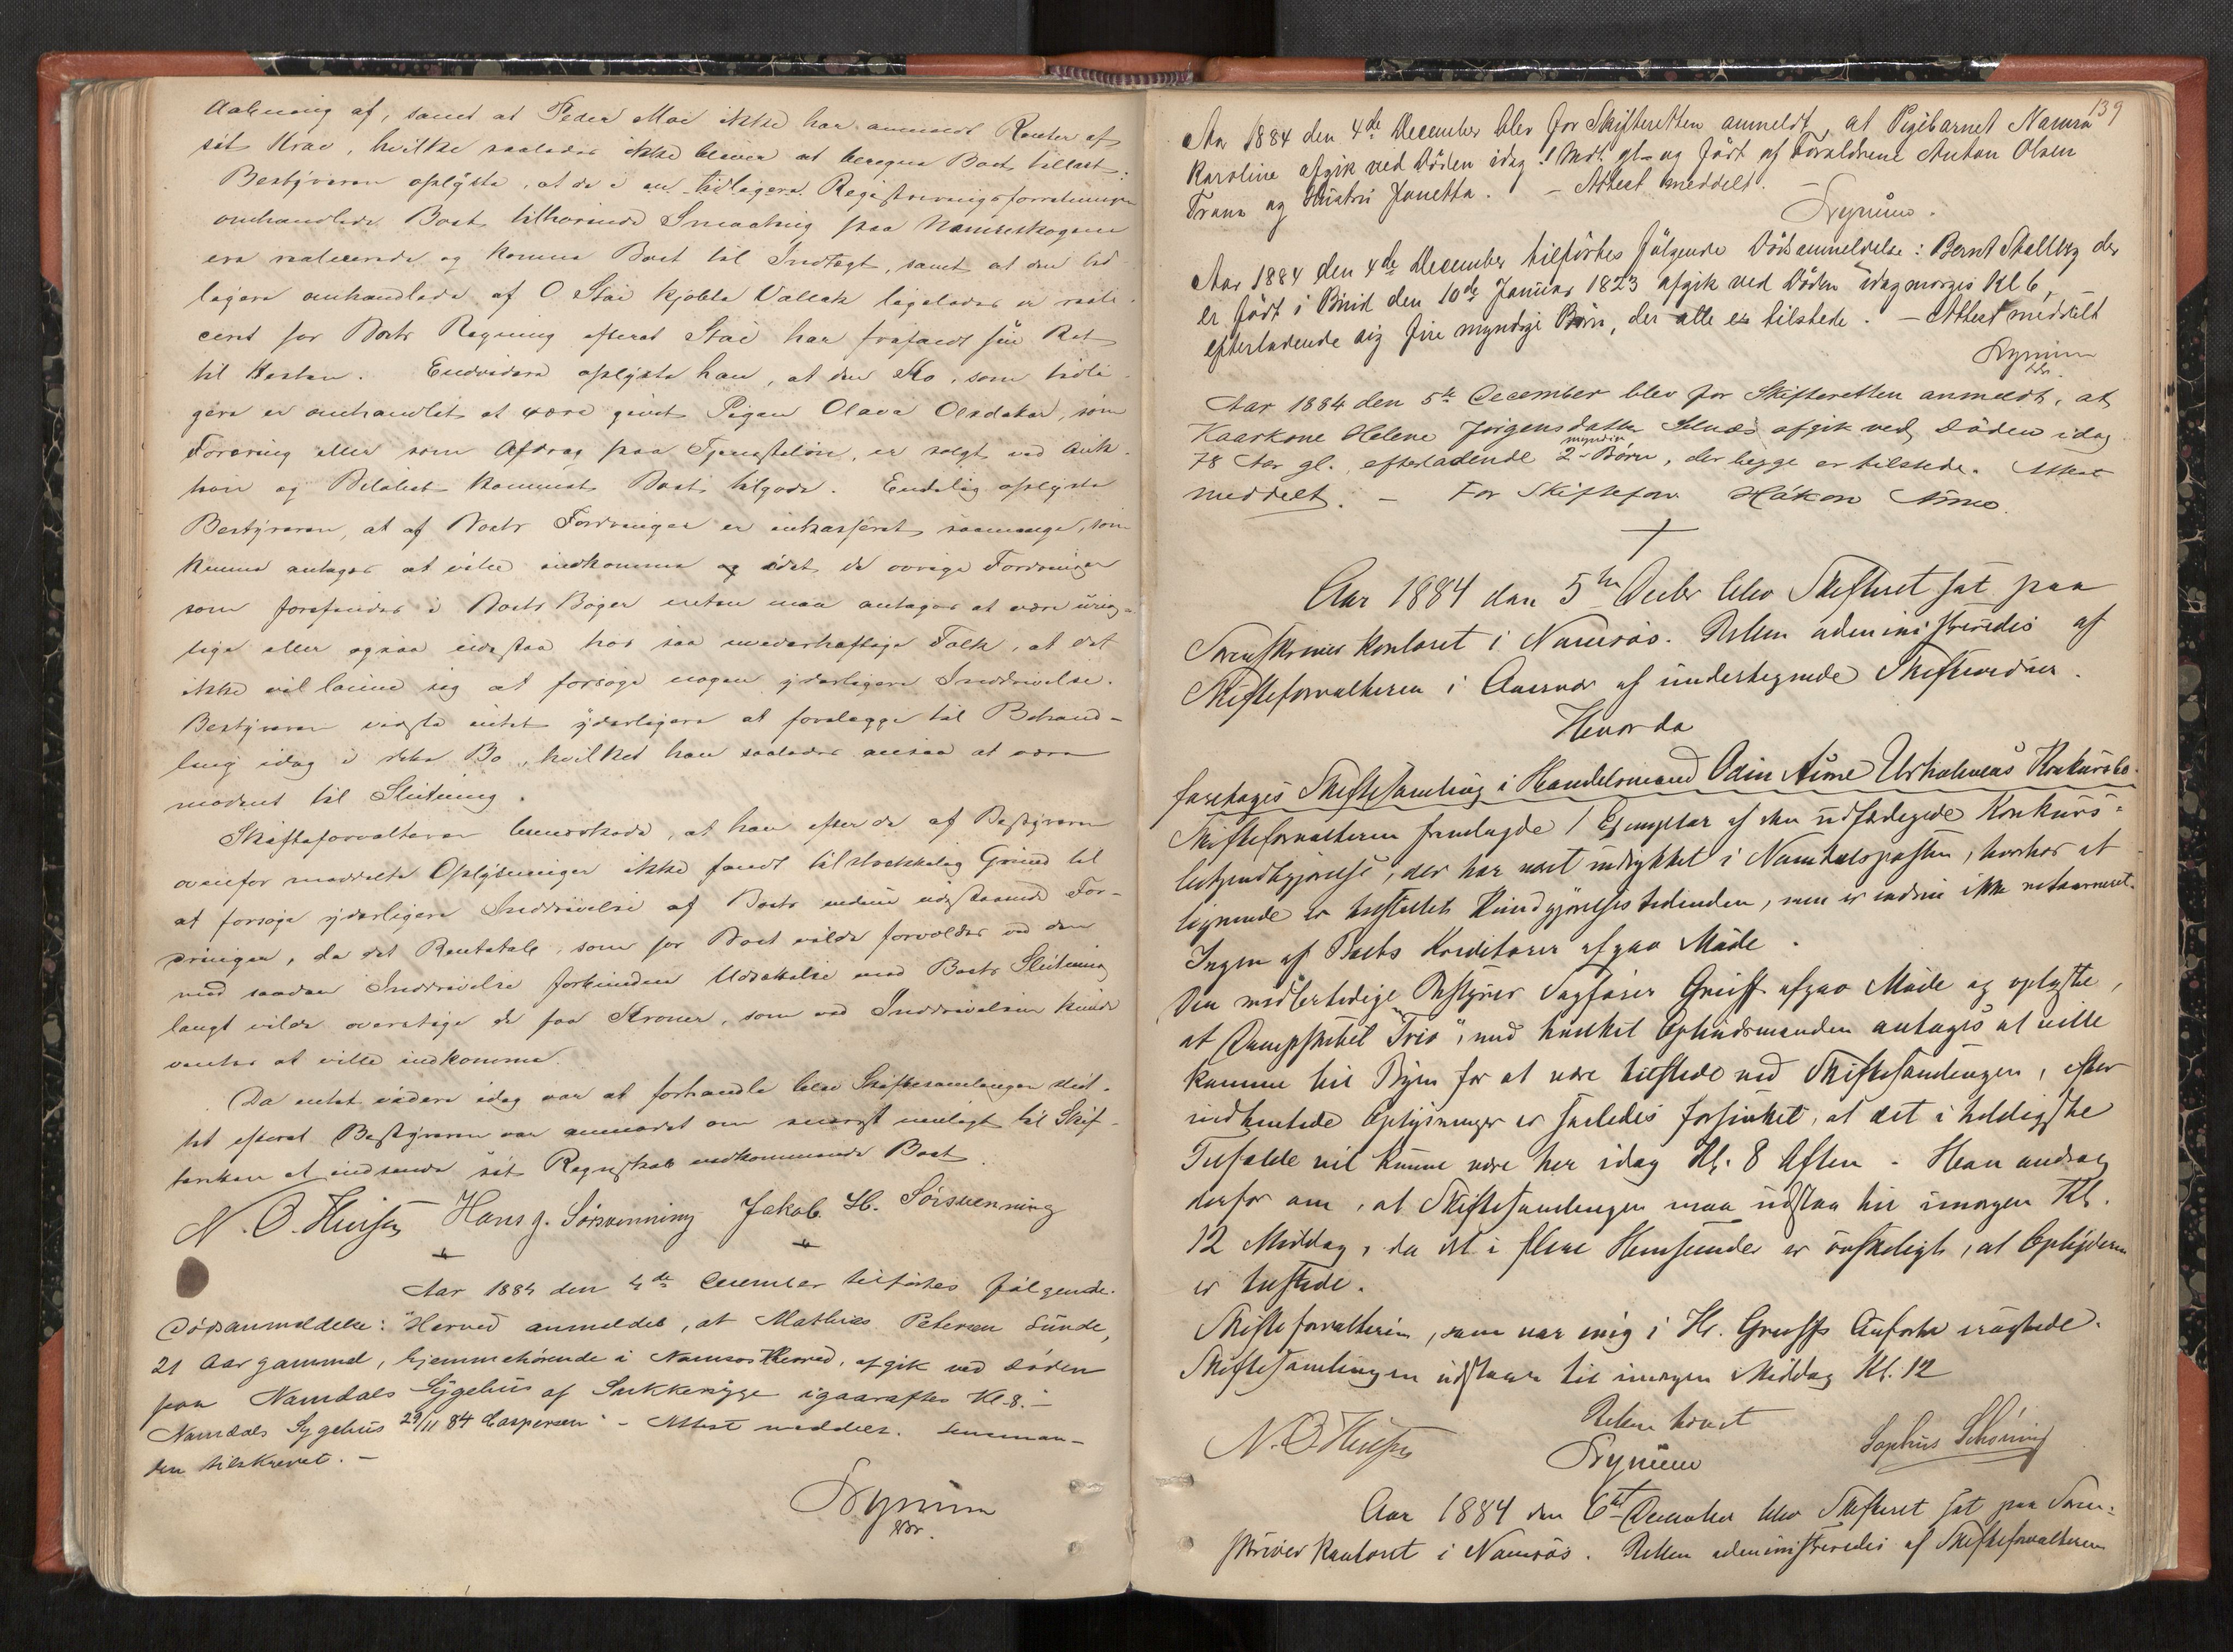 Aabning af, samt at Peder Moe ikke har anmeldt Renter af
sit Krav, hvilke saaledes ikke bliver at beregne Boet tillast.
Bestyreren oplyste, at de i en tidligere Registreringsforretning
omhandlede Boet tilhørende Smaating paa Namsskogen
ere realiserede og komme Boet til Indtægt, samt at den tid
ligere omhandlede af O. Stai kjøbte Vallak ligeledes er reali
ceret for Boets Regning efterat Stai har frafaldt sin Ret
til Hesten. Endvidere oplyste han, at den Ko, som tidli
gere er omhandlet at være givet Pigen Olava Olsdatter, som
Foræring eller som Afdrag paa Tjenesteløn, er solgt ved Auk-
tion og Beløbet kommet Boet tilgode. Endelig oplyste
Bestyreren, at af Boets Fordringer er inkasseret saamange, som
kunne antages at ville indkomme idet de øvrige Fordringer
som forefindes i Boets Bøger enten maa antages at være urig-
tige eller ogsaa udestaa hos saa uvederhæftige Folk, at det
ikke vil lønne sig at forsøge nogen yderligere Inddrivelse.
Bestyreren vidste intet yderligere at forelægge til Behand-
ling idag i dette Bo, hvilket han saaledes ansaa at være
modent til Slutning.
Skifteforvalteren bemærkede, at han efter de af Bestyreren
ovenfor meddelte Oplysninger ikke fandt tilstrækkelig Grund til
at forsøge yderligere Inddrivelse af Boets endnu udestaaende For-
dringer, da det Rentetab, som for Boet vilde forvoldes ved den
med saadan Inddrivelse forbundne Udsættelse med Boets Slutning
langt vilde overstige de faa Kroner, som ved Inddrivelsen kunde
ventes at ville indkomme.
Da intet videre idag var at forhandle blev Skiftesamlingen slut-
tet efterat Bestyreren var anmodet om snarest muligt til Skif-
teretten at indsende sit Regnskab vedkommende Boet
N. O. Hansen Hans J. Sørsvenning Jakob H. Sørsvenning
Aar 1884 den 4de December tilførtes følgende
Dødsanmeldelse: "Herved anmeldes, at Mathias Petersen Sunde,
21 Aar gammel, hjemmehørende i Namsos Herred, afgik ved Døden
paa Namdals Sygehus af Sukkersyge igaaraftes Kl. 8.-
Namdals Sygehus 29/11 84 Caspersen" - Attest meddelt. Lensman-
den tilskrevet. -
139
Aar 1884 den 4de December blev for Skifteretten anmeldt, at Pigebarnet Namna
Karoline afgik ved Døden idag 1 Mdr. gl. og født af Forældrene Anton Olsen
Trana og Hustru Janetta. - Attest meddelt. -
Aar 1884 den 4de December tilførtes følgende Dødsanmeldelse: Bernt Stallvig der
er født i Brud den 10de Januar 1823 afgik ved Døden idagmorges Kl 6,
efterladende sig fire myndige Børn, der alle er tilstede. - Attest meddelt
Aar 1884 den 5te December blev for Skifteretten anmeldt, at
Kaarkone Helene Jørgensdatter Selnæs afgik ved Døden idag
78 Aar gl., efterladende 2 myndige Børn, der begge er tilstede. Attest
meddelt. - For Skifteforv. Håkon Aune.
Aar 1884 den 5te Decbr blev Skifteret sat paa
Sorenskriverkontoret i Namsos. Retten administreredes af
Skifteforvalteren i Overvær af undertegnede Skiftevidner.
Hvorda
foretoges Skiftesamling i Handelsmand Odin Aune Urholmens Konkursbo.
Skifteforvalteren fremlagde 1 Exemplar af den udfærdigede Konkurs-
bekjendtgjørelse, der har været indrykket i Namdalsposten, hvorhos et
lignende er tilstillet Kundgjørelsestidenden, men er endnu ikke returneret.
Ingen af Boets Kreditorer afgav Møde.
Den midlertidige Bestyrer Sagfører Greiff afgav Møde og oplyste,
at Dampskibet "Trio", med hvilket Opbudsmanden antages at ville
komme til Byen for at være tilstede ved Skiftesamlingen, efter
indhentede Oplysninger er saaledes forsinket, at det i heldigste
Tilfælde vil kunne være her idag Kl. 8 Aften. - Han androg
derfor om, at Skiftesamlingen maa udstaa til imorgen Kl.
12 Middag, da det i flere Henseender er ønskeligt, at Opbyderen
er tilstede.
Skifteforvalteren, som var enig i Hr. Greiffs Anførte
Skiftesamlingen udstaar til imorgen Middag Kl. 12
Retten hævet
N. O. Hansen Sophus Schøning
Aar 1884 den 6te December blev Skifteret sat paa Soren-
skriverkontoret i Namsos. Retten administreredes af Skifteforvalteren